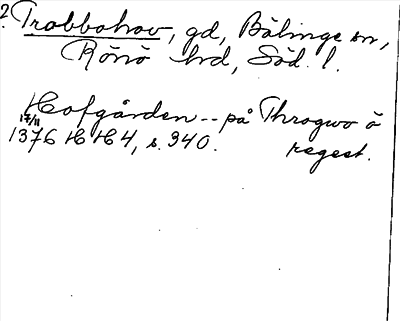 2. Trobbohov, gd, Bälinge sn,
Rönö hd, Söd. l.
Hofgården -- på Throgwo ö
17/11
1376 HH4, s. 340. regest.